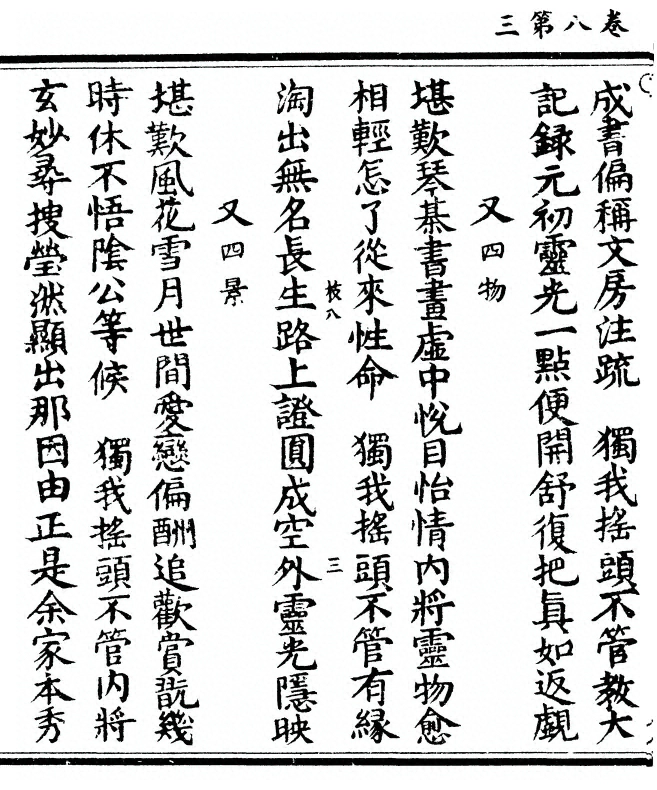 卷八第三
成書偏稱文房注疏　獨我搖頭不管教大
記録元初靈光一點便開舒復把眞如返覷
又四物
堪歎琴棊書畫虛中悅目怡情内將靈物愈
相輕怎了從來性命　獨我搖頭不管有緣
枝八　三
淘出無名長生路上證圓成空外靈光隱映
又四景
堪歎風花雪月世間愛戀偏酬追歡賞翫幾
時休不悟陰公等候　獨我搖頭不管内將
玄妙尋搜瑩然顯出那因由正是余家本秀